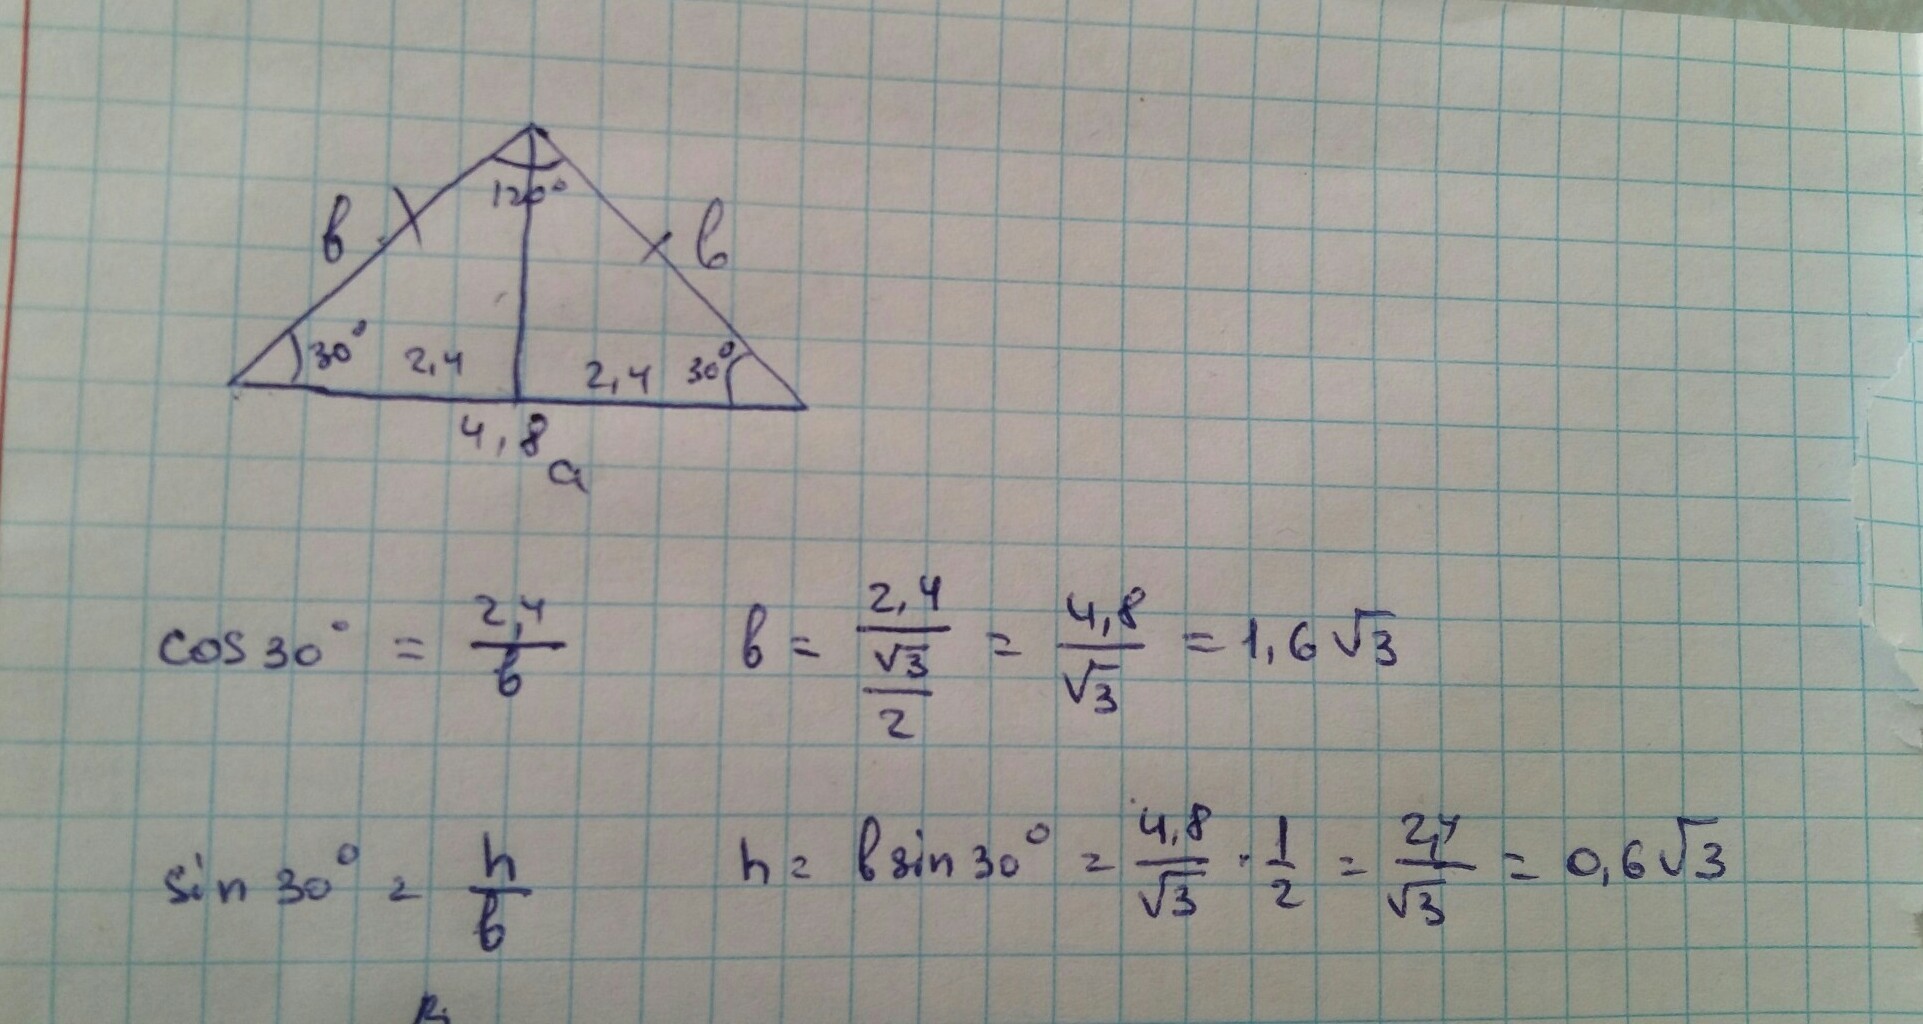 120°
в в
30° 2,4 2,4 30°
4,8
a
cos 30° = 2,4/в в = 2,4/(√3/2) = 4,8/√3 = 1,6√3
sin 30° = h/в h = в sin 30° = 4,8/√3 · 1/2 = 2,4/√3 = 0,6√3